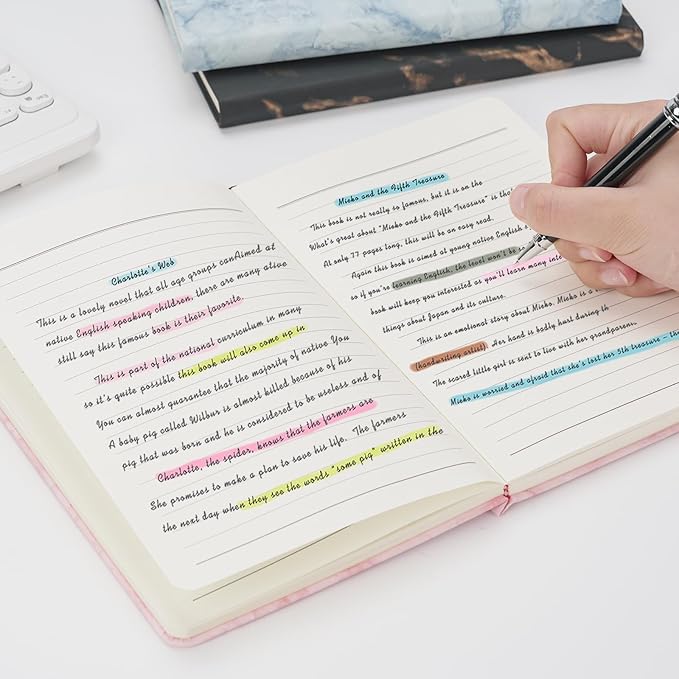 Charlotte's Web
This is a lovely novel that all age groups canAimed at
native English speaking children, there are many ative
still say this famous book is their favorite.
This is part of the national curriculum in many
so it's quite possible this book will also come up in
You can almost guarantee that the majority of native You
A baby pig called Wilbur is almost killed because of his
pig that was born and he is considered to be useless and of
Charlotte, the spider, knows that the farmers are
She promises to make a plan to save his life. The farmers
the next day when they see the words "some pig" written in the
Mieko and the Fifth Treasure
This book is not really so famous, but it is on the
What's great about "Mieko and the Fifth Treasure" is
At only 77 pages long, this will be an easy read.
Again this book is aimed at young native English
so if you're learning English, the level won't be
book will keep you interested as you'll learn many
things about Japan and its culture.
This is an emotional story about Mieko. Mieko is a
(handwriting artist). Her hand is badly hurt during th
The scared little girl is sent to live with her grandparents.
Mieko is worried and afraid that she's lost her 5th treasure –